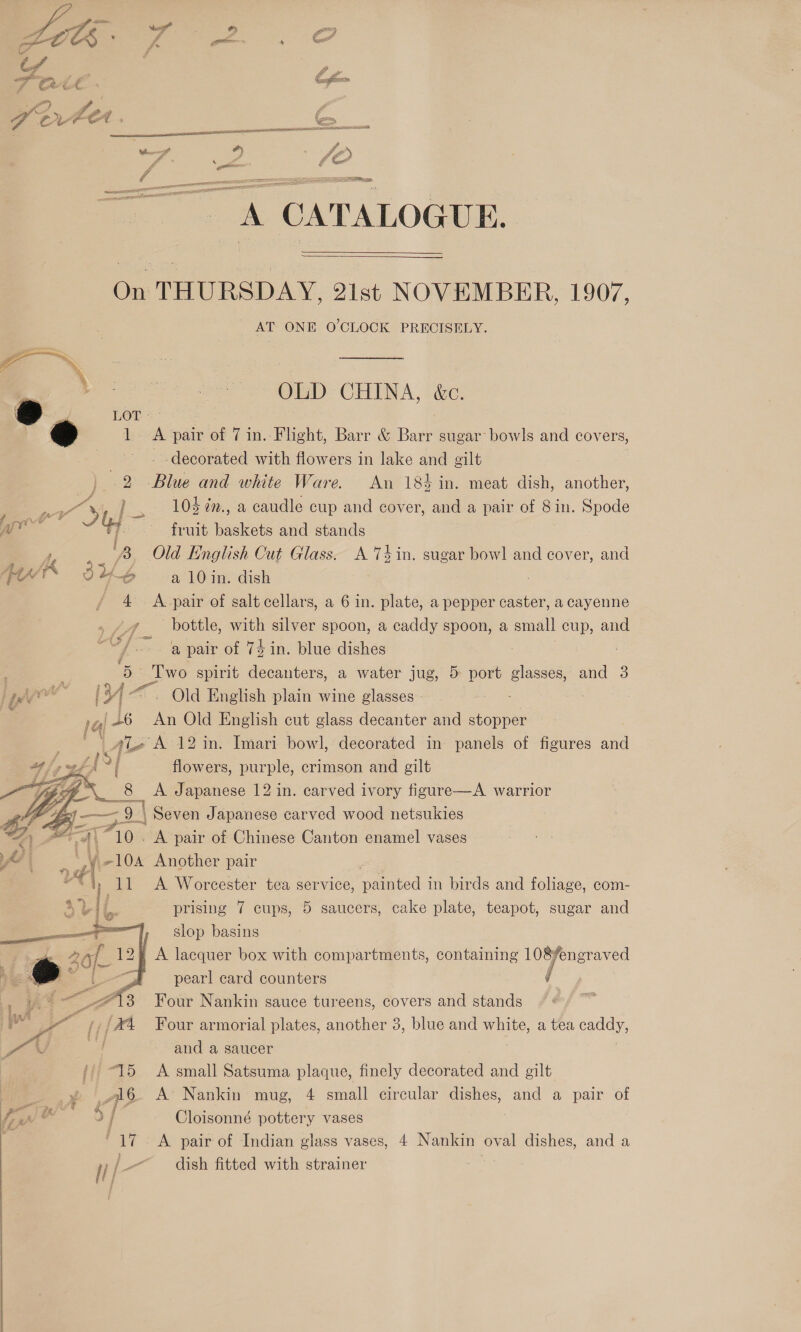 Lots. 7 2. 0
6
7 2 10
A CATALOGUE.
On THURSDAY, 21st NOVEMBER, 1907,
AT ONE O'CLOCK PRECISELY.
OLD CHINA, &c.
LOT
1 A pair of 7 in. Flight, Barr & Barr sugar bowls and covers,
decorated with flowers in lake and gilt
2 Blue and white Ware. An 18½ in. meat dish, another,
10½ in., a caudle cup and cover, and a pair of 8 in. Spode
fruit baskets and stands
3 Old English Cut Glass. A 7½ in. sugar bowl and cover, and
a 10 in. dish
4 A pair of salt cellars, a 6 in. plate, a pepper caster, a cayenne
bottle, with silver spoon, a caddy spoon, a small cup, and
a pair of 7½ in. blue dishes
5 Two spirit decanters, a water jug, 5 port glasses, and 3
Old English plain wine glasses
6 An Old English cut glass decanter and stopper
A 12 in. Imari bowl, decorated in panels of figures and
flowers, purple, crimson and gilt
8 A Japanese 12 in. carved ivory figure—A warrior
9 Seven Japanese carved wood netsukies
10 A pair of Chinese Canton enamel vases
10A Another pair
11 A Worcester tea service, painted in birds and foliage, com-
prising 7 cups, 5 saucers, cake plate, teapot, sugar and
slop basins
12 A lacquer box with compartments, containing 108 engraved
pearl card counters
13 Four Nankin sauce tureens, covers and stands
14 Four armorial plates, another 3, blue and white, a tea caddy,
and a saucer
15 A small Satsuma plaque, finely decorated and gilt
16 A Nankin mug, 4 small circular dishes, and a pair of
Cloisonné pottery vases
17 A pair of Indian glass vases, 4 Nankin oval dishes, and a
dish fitted with strainer